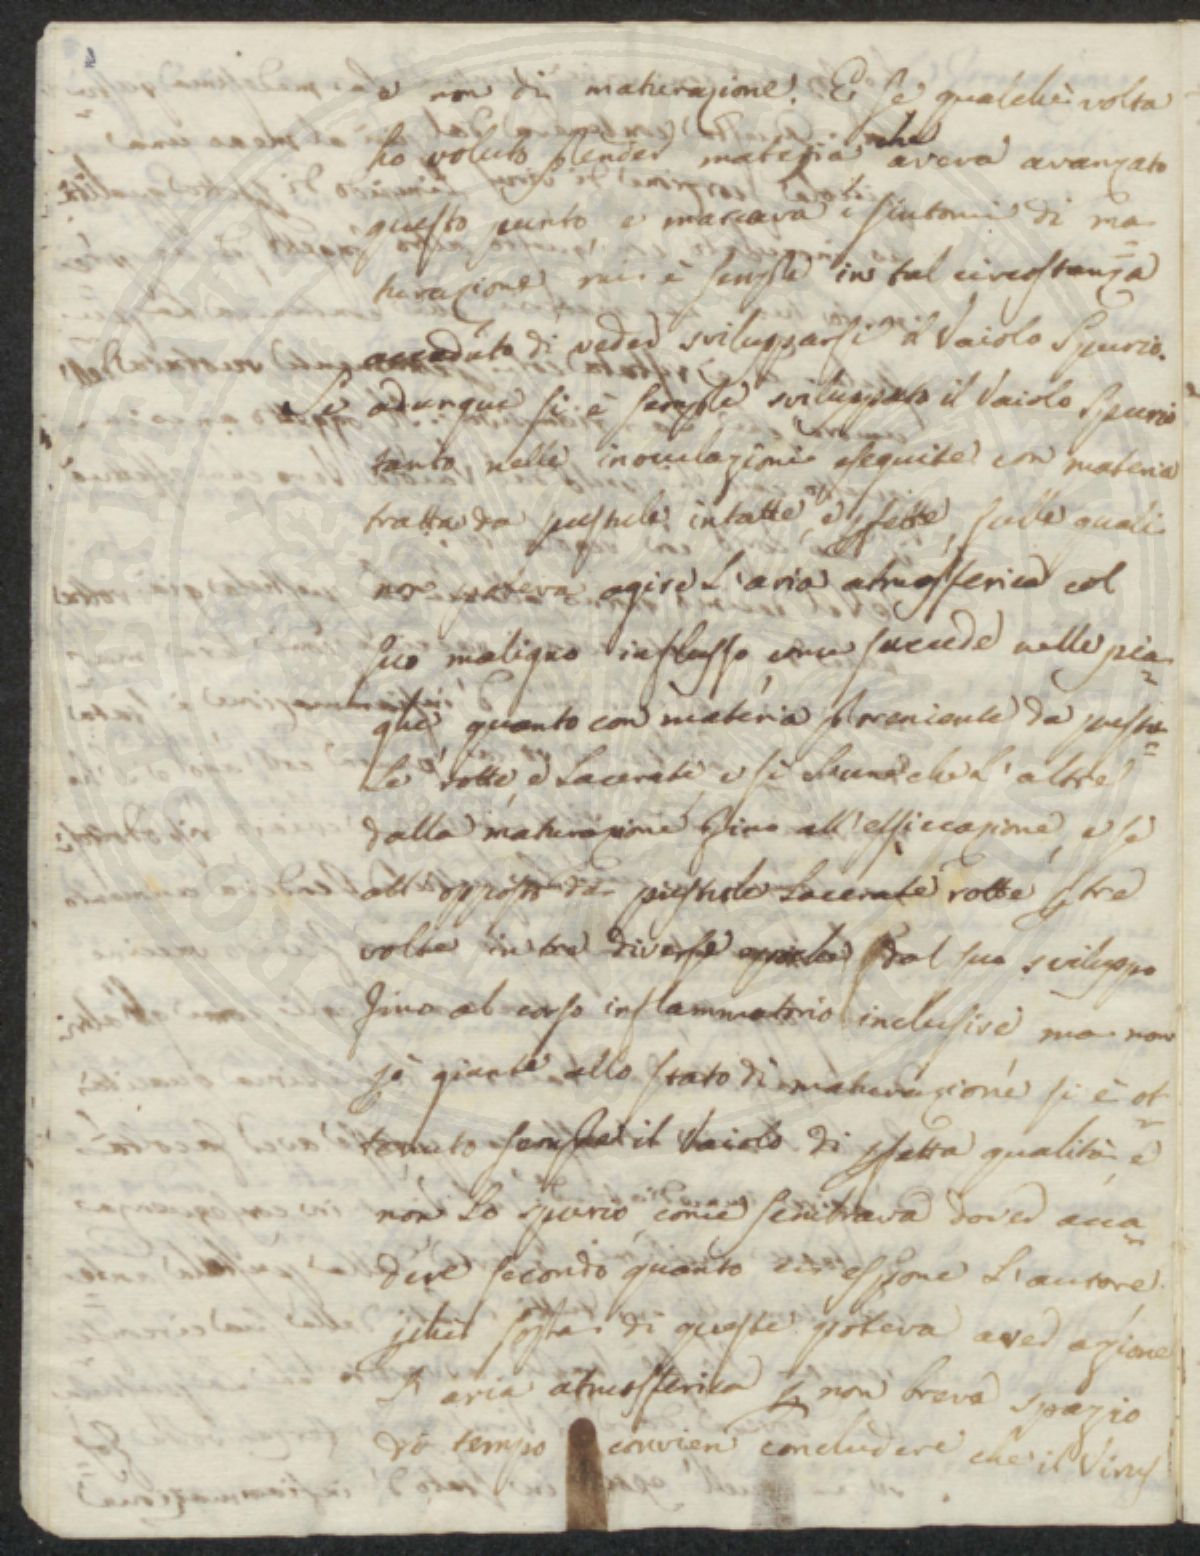 e non di maturazione. E se qualche volta
ho voluto prender materia che aveva avanzato
questo punto e marcava i sintomi di ma=
turazione mi è sempre in tal circostanza
accaduto di veder svilupparsi il Vaiolo Spurio.
Se adunque si è sempre sviluppato il Vaiolo Spurio
tanto nelle inoculazioni eseguite con materia
tratta da pustule intatte, e sulle quali
non poteva agire l'aria atmosferica col
suo maligno influsso, come succede nelle pia=
ghe quanto con materia proveniente da pustu=
le rotte e lacerate, e sì l'une che l'altre
dalla maturazione fino all'essiccazione, e se
all'opposto da pustule lacerate rotte tre
volte in tre diverse dal suo sviluppo
fino al corso inflammatorio inclusive ma non
giunte allo stato di maturazione si è ot=
tenuto sempre il Vaiolo di perfetta qualità, e
non lo spurio come sembrava dover acca=
dere secondo quanto espone l'autore
sopra di queste poteva aver azione
l'aria atmosferica per non breve spazio
di tempo convien concludere che il Virus